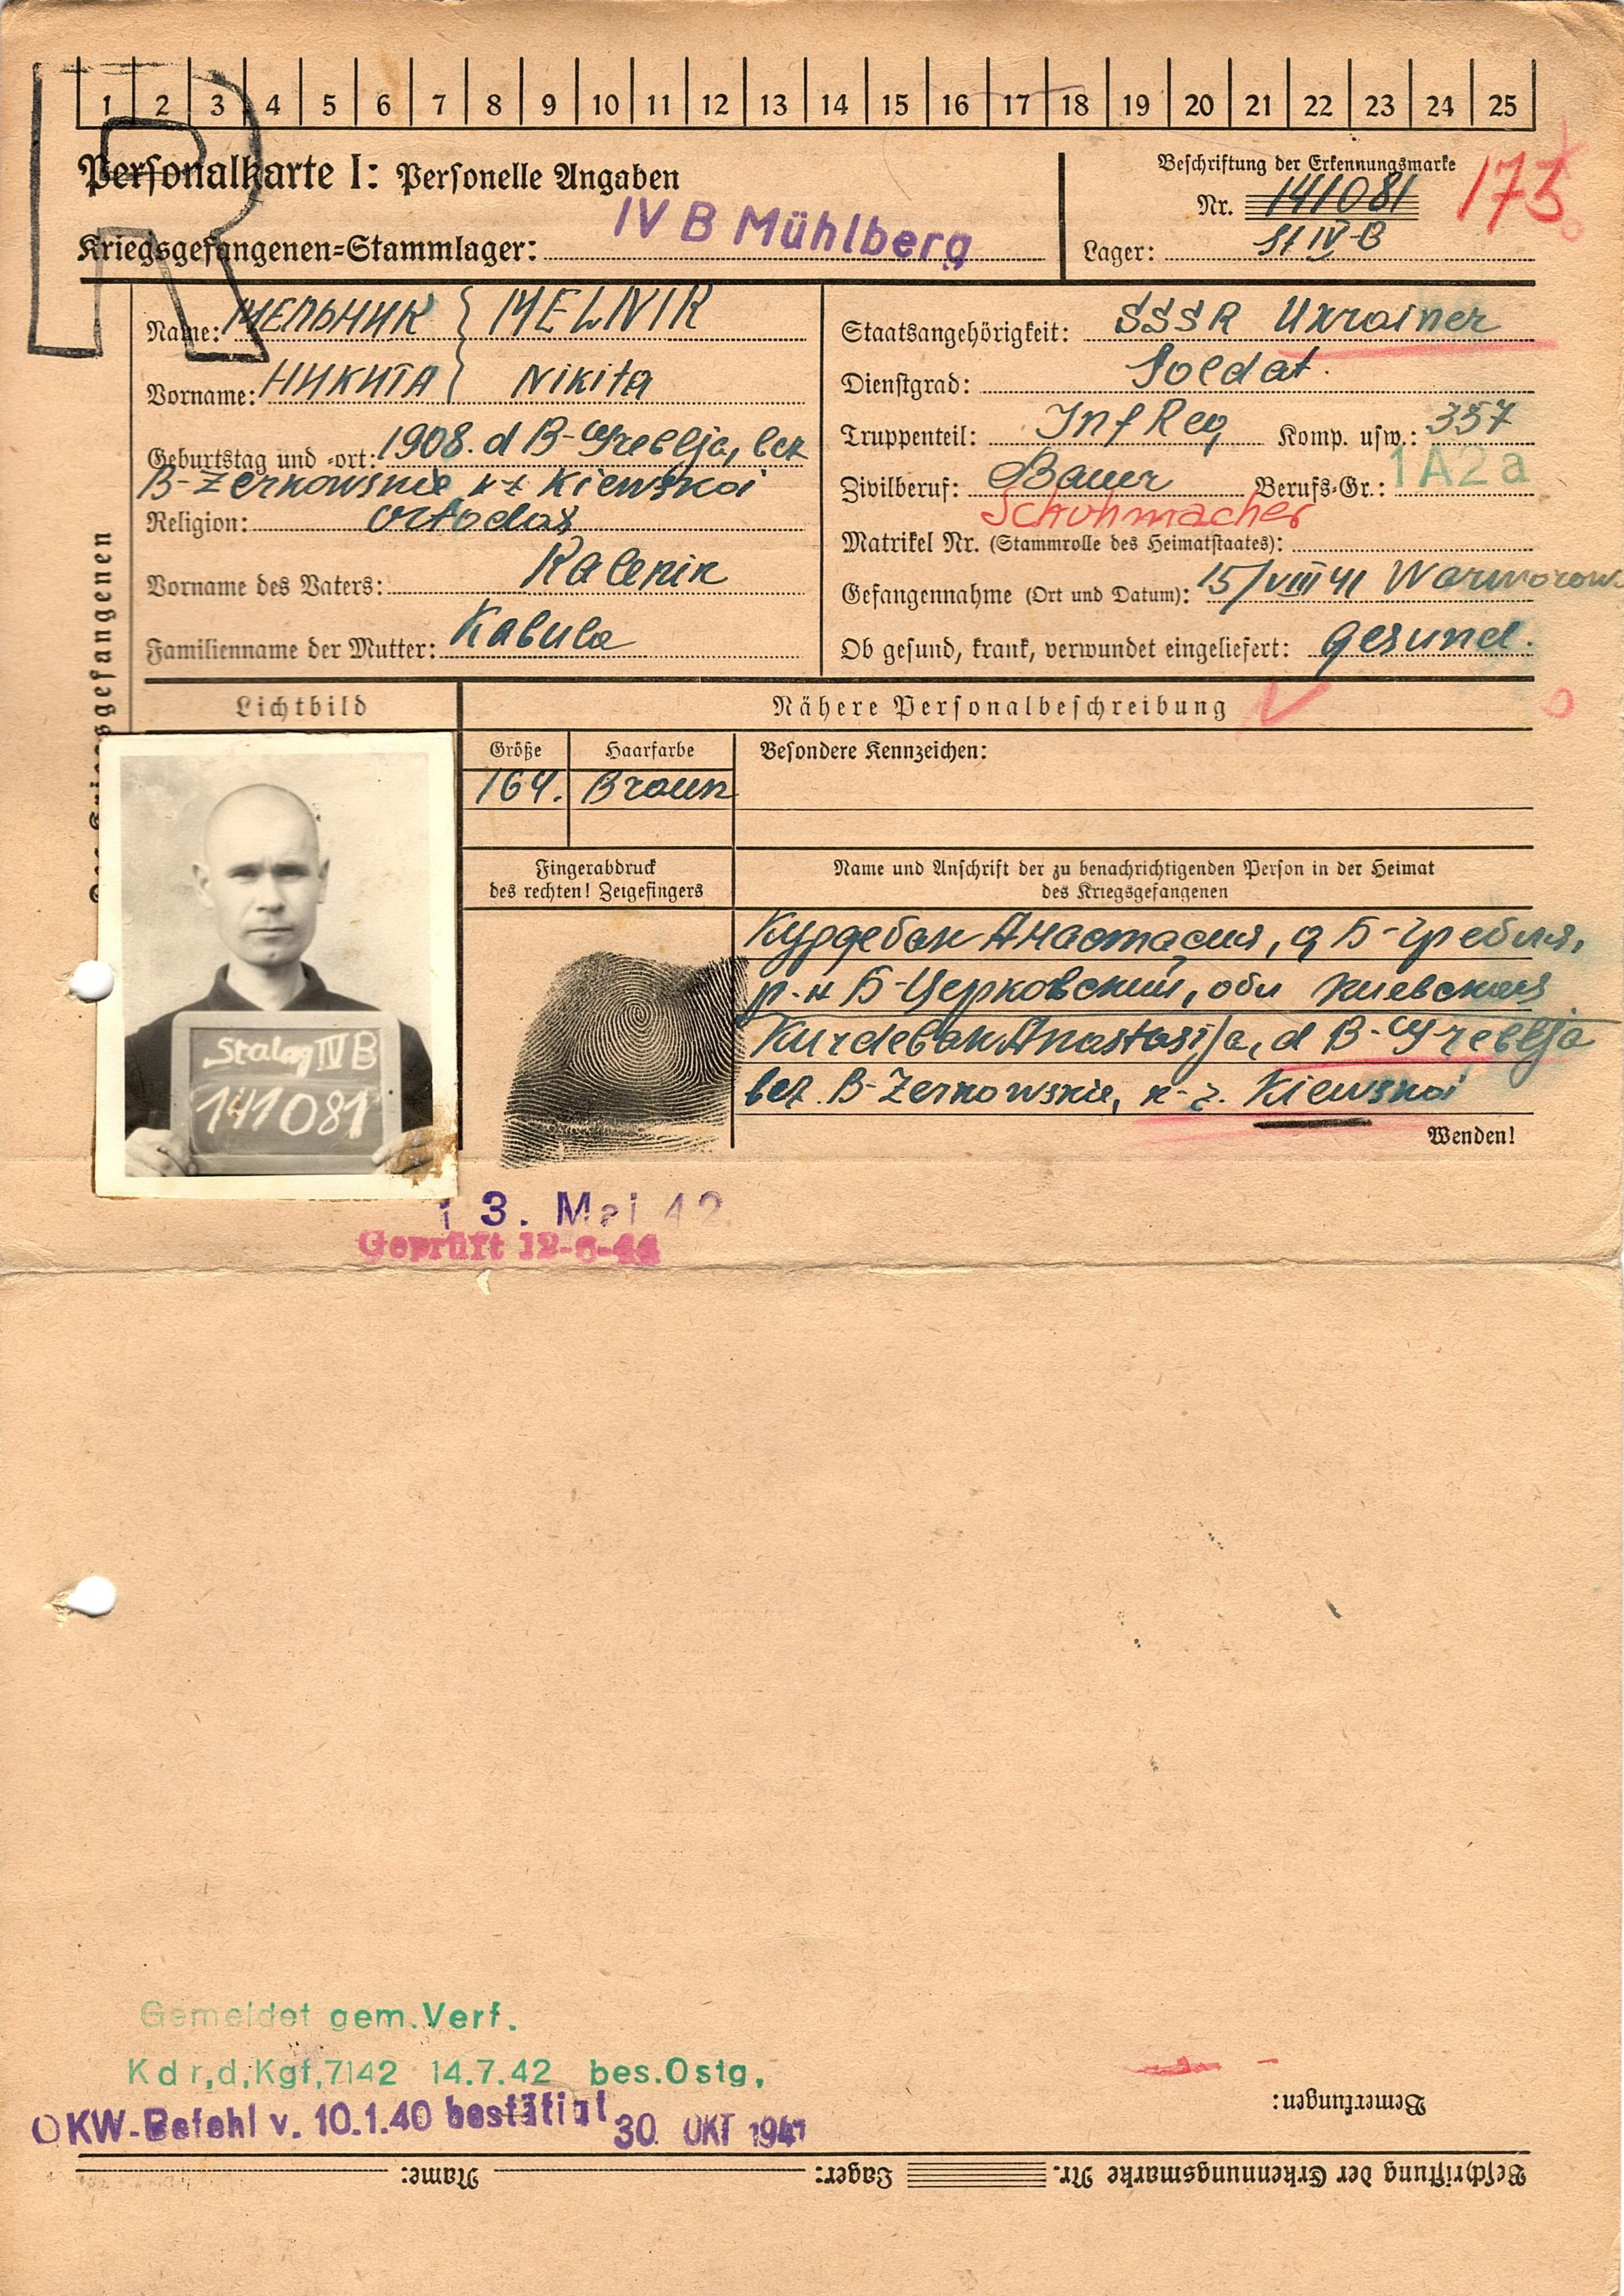 1 2 3 4 5 6 7 8 9 10 11 12 13 14 15 16 17 18 19 20 21 22 23 24 25
R
Personalkarte I: Personelle Angaben
Kriegsgefangenen-Stammlager: IV B Mühlberg
Beschriftung der Erkennungsmarke
Nr. 141081
173
Lager: St IV-B
Name: МЕЛЬНИК MELNIK
Vorname: НИКИТА Nikita
Geburtstag und -ort: 1908. d B-Greblja, bez
B-Zerkowskie, k-z Kiewskoi
Religion: ortodox
Vorname des Vaters: Kalenik
Familienname der Mutter: Kabula
Staatsangehörigkeit: SSSR Ukrainer
Dienstgrad: Soldat.
Truppenteil: Inf Reg Komp. usw.: 357
Zivilberuf: Bauer Berufs-Gr.: 1A2a
Schuhmacher
Matrikel Nr. (Stammrolle des Heimatstaates):
Gefangennahme (Ort und Datum): 15/VIII 41
Ob gesund, krank, verwundet eingeliefert: gesund.
Des Kriegsgefangenen
Lichtbild
Nähere Personalbeschreibung
Größe Haarfarbe Besondere Kennzeichen:
164. Braun
Stalag IV B
141081
Fingerabdruck
des rechten! Zeigefingers
Name und Anschrift der zu benachrichtigenden Person in der Heimat
des Kriegsgefangenen
Курдебан Анастасия, д Б-Гребля,
р-н Б-Церковский, обл Киевская
Kurdeban Anastasija, d B-Greblja
bez. B-Zerkowskie, k-z. Kiewskoi
Wenden!
13. Mai 42
Geprüft 12-6-44
Gemeldet gem. Verf.
Kdr,d,Kgf,7142 14.7.42 bes.Ostg,
OKW-Befehl v. 10.1.40 bestätigt 30. OKT 1941
Bemerkungen:
Beschriftung der Erkennungsmarke Nr. Lager: Name: